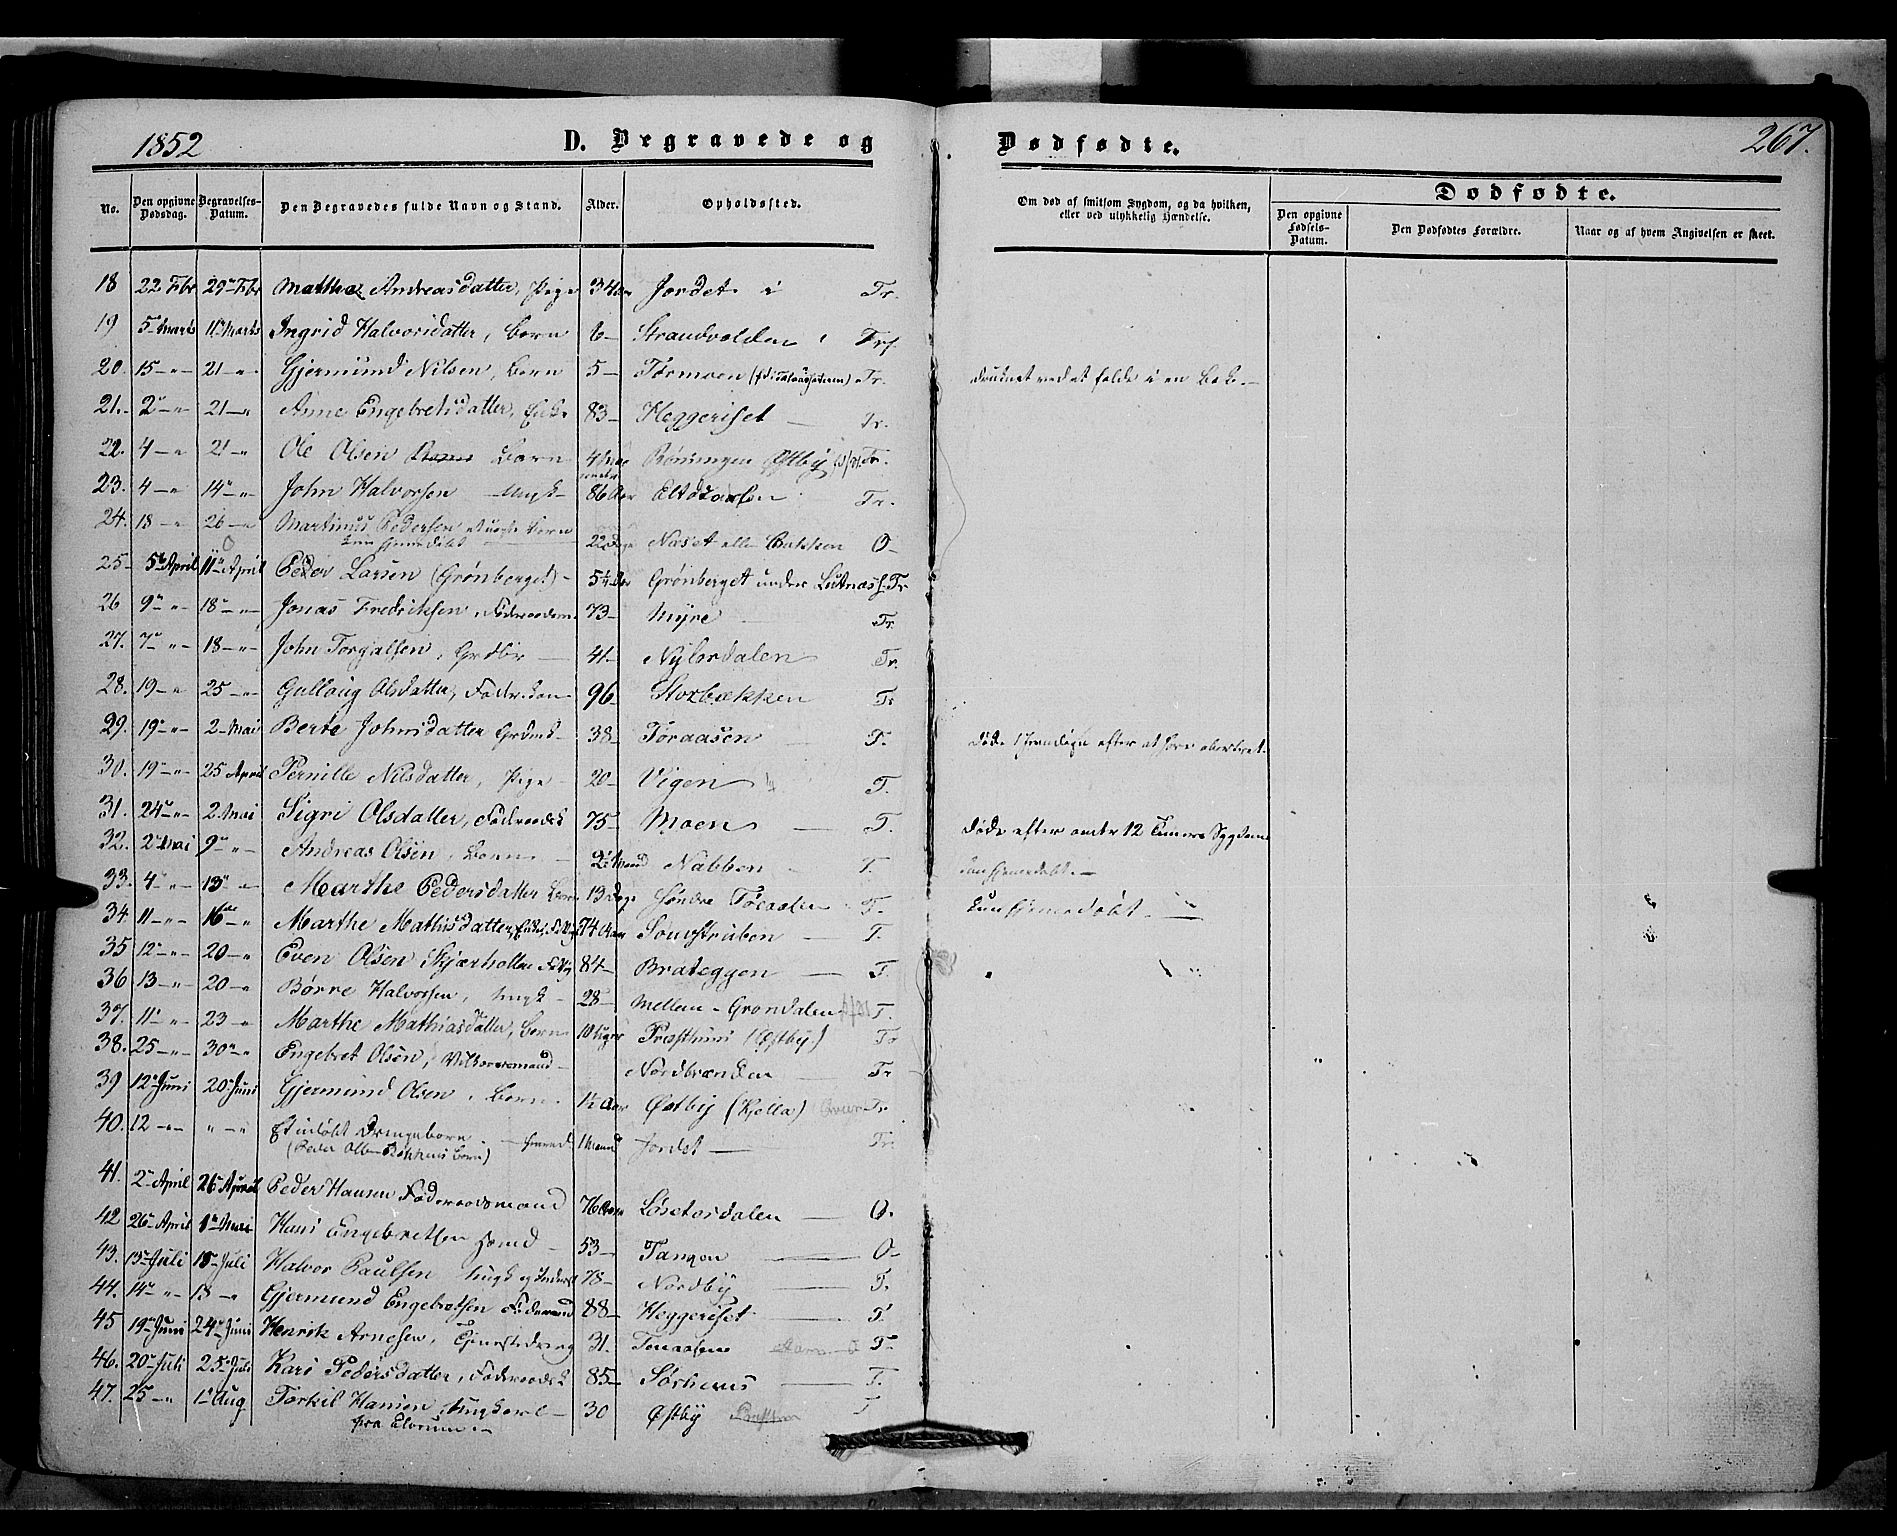 1852 D. Begravede og Dødfødte. 267.
No. Den opgivne Dødsdag. Begravelses-Datum. Den Begravedes fulde Navn og Stand. Alder. Opholdssted. Om død af smitsom Sygdom, og da hvilken, eller ved ulykkelig Hændelse. Dødfødte. Den opgivne Fødsels-Datum. Den Dødfødtes Forældre. Naar og af hvem Angivelsen er skeet.
18 22 Fbr 29 Fbr Mathea Andreasdatter, Pige 34 Aar Jordet i Tr.
19 5 Marts 11 Marts Ingrid Halvorsdatter, Barn 6 Strandvolden Trs
20. 15 " 21 " Gjermund Nilsen, Barn 5 Tørmoen Tr. druknet ved at falde i en Bæk.
21. 2 " 21 " Anne Engebretsdatter, Enke 83 Heggeriset Tr.
22. 4 " 21 " Ole Olsen Barn 4 Maaneder Røningen Østby Tr.
23. 4 " 14 " John Halvorsen Ungk 86 Aar Tr.
24. 18 " 26 " Martinus Pedersen Barn 22 Dage Næset eller Bakken O
kun hjemmedøbt
25 5 April 11 April Peder Larsen (Grønberget) 5½ Aar Grønberget under Lutnæs Tr
26 9 " 18 " Jonas Fredriksen, Føderaadsm. 73 Myre Tr.
27. 7 " 18 " John Torgalsen, Grdbr 41 Tr.
28. 19 " 25 " Gulloug Olsdatter, Fødr.kone 96 Storbækken Tr
29. 19 " 2 Mai Berte Johnsdatter Grdmk 38 Tøraasen T.
30. 19 " 25 April Pernille Nilsdatter, Pige 20 Vigen T.
31. 24 " 2 Mai Sigri Olsdatter, Føderaadsk 75 Moen T. døde efter 12 Timers Sygdom
32. 2 Mai 9 " Andreas Olsen, Barn 2½ Maaned Nabben T. kun hjemmedøbt.
33. 4 " 13 " Marthe Pedersdatter Barn 13 Dage Søndre T. kun hjemmedøbt.
34 11 " 16 " Marthe Mathisdatter, Enke 74 Aar T.
35 12 " 20 " Even Olsen Skjærholten 84 Brateggen T.
36 13 " 20 " Børre Halvorsen, Ungk 28 Mellem-Grøndalen T.
37. 11 " 23 " Marthe Mathiasdatter, Barn 10 Uger Præsthuus (Østby.) Tr
38. 25 " 30 " Engebret Olsen, Vilkaarsmand Nordbrænden Tr
39 12 Juni 20 Juni Gjermund Olsen, Barn 1½ Aar Østby (Kjølla) Tr
40. 12 " " " Et udøbt Drengebarn 1 Maaned Jordet Tr.
(Peder Olsen Bakkens Barn)
41. 2 April 26 April Peder Hansen Føderaadsmand 76 Aar Løsetdalen O.
42 26 April 1 Mai Hans Engebretsen 53 Tangen O
43. 13 Juli 18 Juli Halvor Paulsen Ungk og Inderst 78 Nordby T.
44. 14 " 18 " Gjermund Engebretsen Føderaad 88 Heggeriset T.
45 19 Juni 24 Juni Henrik Arnesen, Tjenestedreng 31. T.
46. 20 Juli 25 Juli Kari Pedersdatter, Føderaadsk 85 Sørhuus T.
47. 25 " 1 Aug Torkil Hansen, Ungkarl 30 Østby T
fra Elverum.